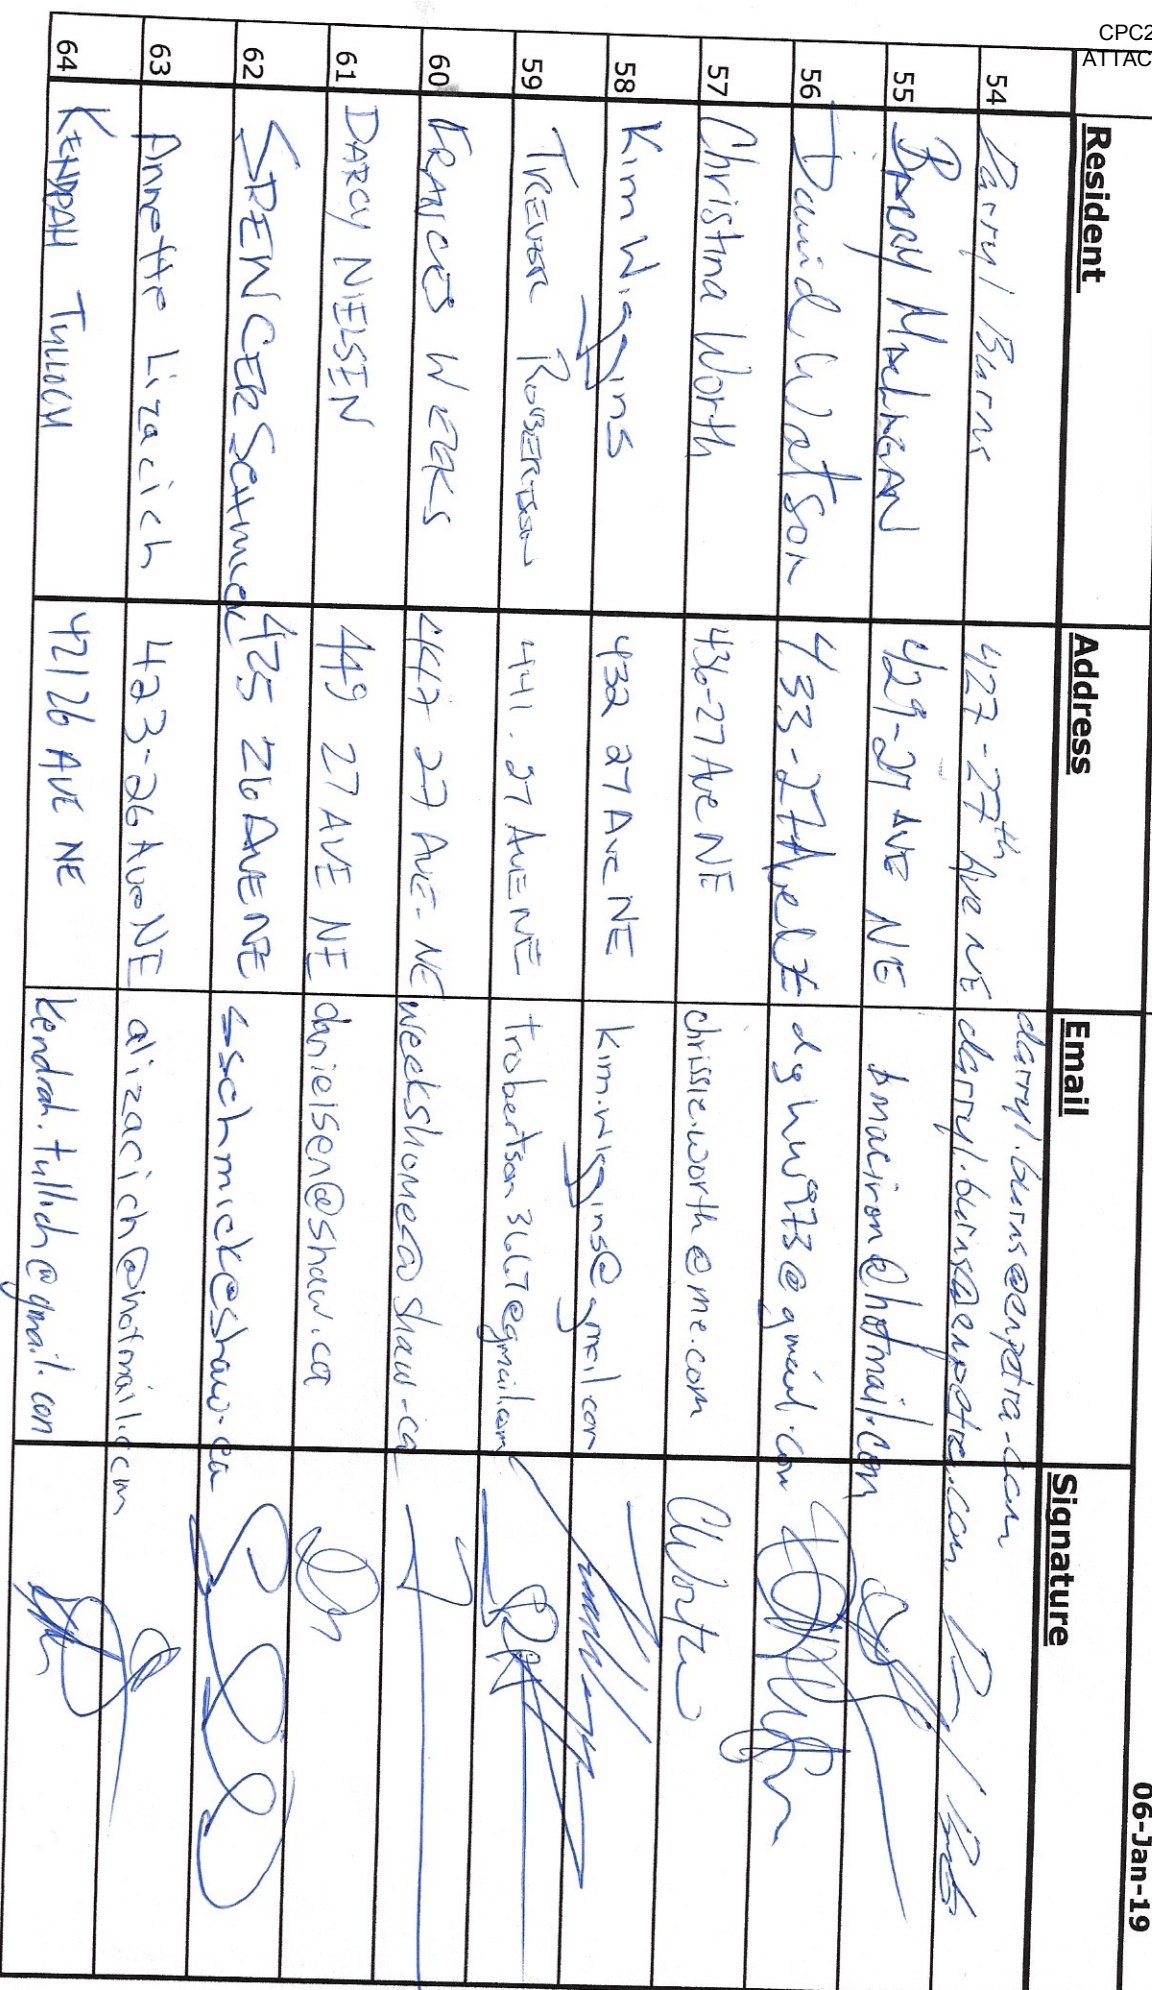 CPC2
ATTAC
06-Jan-19
Resident Address Email Signature
darryl.burns@enpetra.com
54 Darryl Burns 427-27th Ave NE darryl.burns@enpetra.com
55 429-27 AVE NE bmaciron@hotmail.com
56 David Watson 433-27 Ave
57 Christina Worth 436-27 Ave NE chrissie.worth@me.com CWorth
58 Kim Wiggins 432 27 Ave NE kim.wiggins@gmail.com
59 TREVOR ROBERTSON 441. 27 AVE NE trobertson3667@gmail.com
60 FRANCES WEEKS 447 27 AVE. NE weekshome@shaw.ca
61 DARCY NIELSEN 449 27 AVE NE dnielsen@shaw.ca
62 SPENCER Schmick 425 26 AVE NE sschmick@shaw.ca
63 Annette Lizacich 423-26 Ave NE alizacich@hotmail.com
64 KENDRAH TULLOCH 421 26 AVE NE kendrah.tulloch@gmail.com